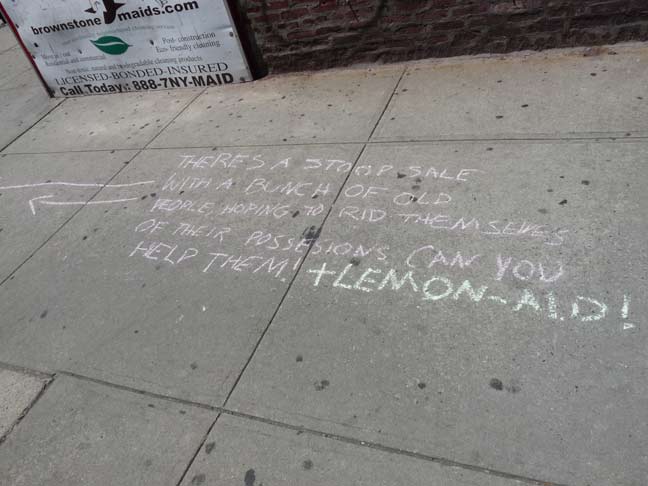 brownstone maids.com
Post-construction
Residential and commercial
Eco-friendly cleaning
Non-toxic, natural and biodegradable cleaning products
LICENSED-BONDED-INSURED
Call Today: 888-7NY-MAID
THERES A STOOP SALE
WITH A BUNCH OF OLD
PEOPLE, HOPING TO RID THEMSELVES
OF THEIR POSSESIONS. CAN YOU
HELP THEM! +LEMON-AID!